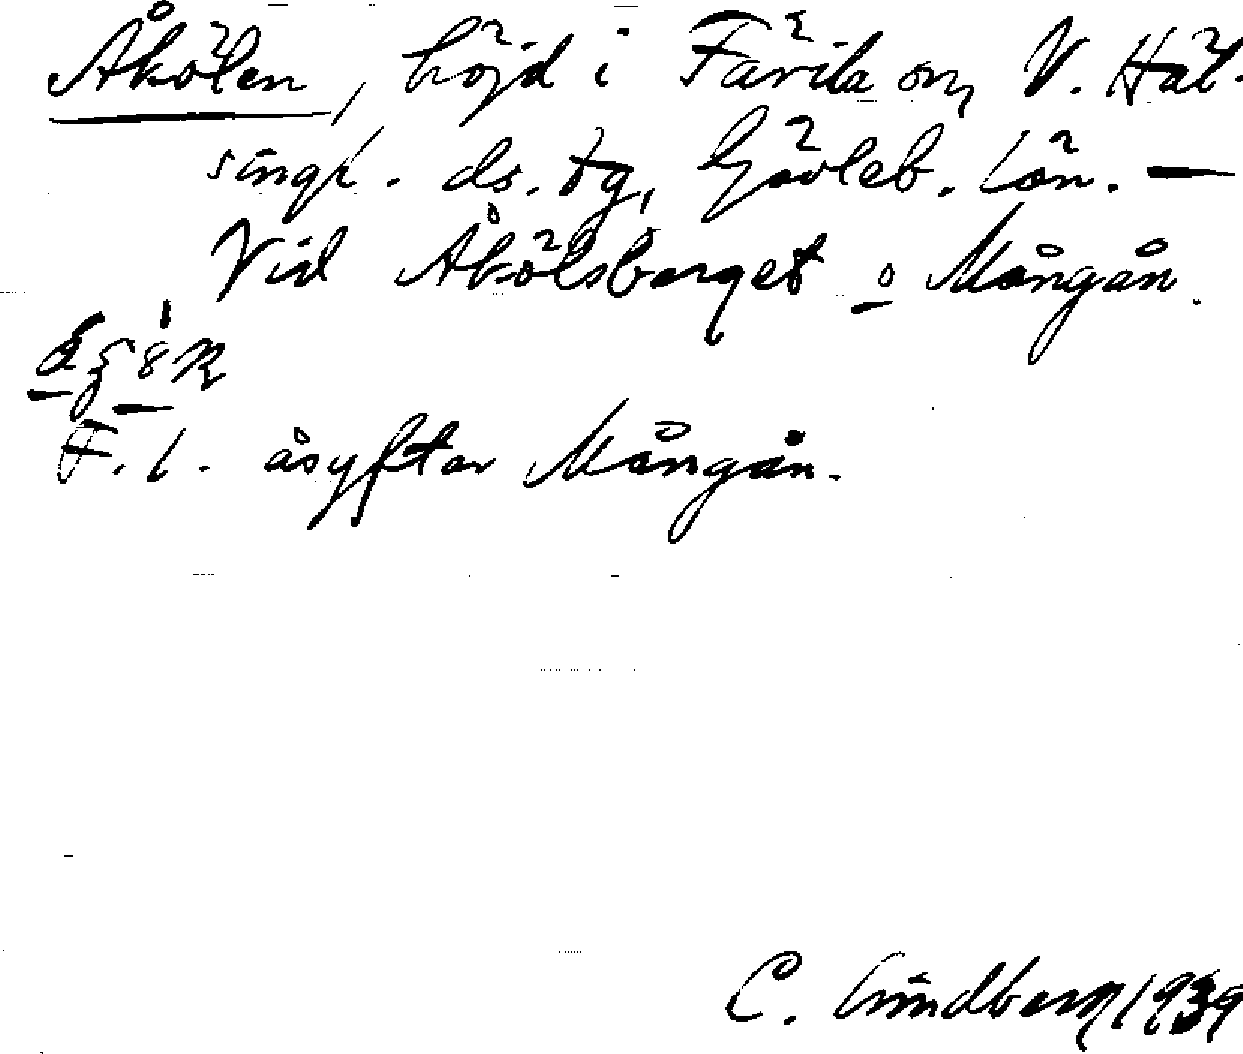 Åkölen, höjd i Färila sn, V. Häl-
singl. ds. tg, Gävleb. län. —
Vid Åkölsberget o Mångån.
F. l. åsyftar Mångån.
C. Lindberg 1939